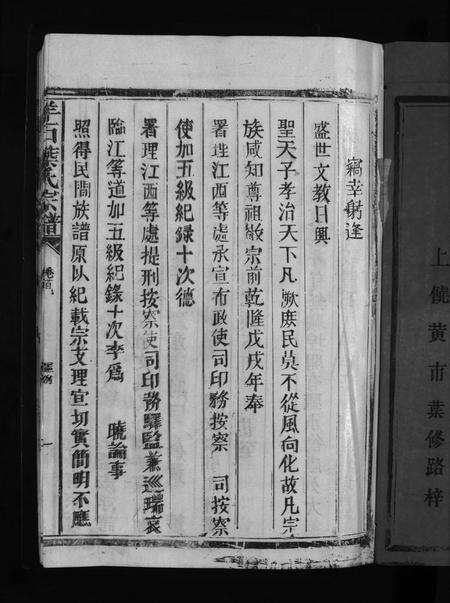 上饒黃市葉修路梓
竊幸躬逢
盛世文教日興
聖天子孝治天下凡厥庶民莫不從風向化故凡宗
族咸知尊祖敬宗前乾隆戊戌年奉
署理江西等處承宣布政使司印務按察 司按察
使加五級紀錄十次德
署理江西等處提刑按察使司印務驛鹽兼巡瑞袁
臨江等道加五級紀錄十次李為 曉諭事
照得民間族譜原以紀載宗支理宜切實簡明不應
葉氏宗譜
卷首
一